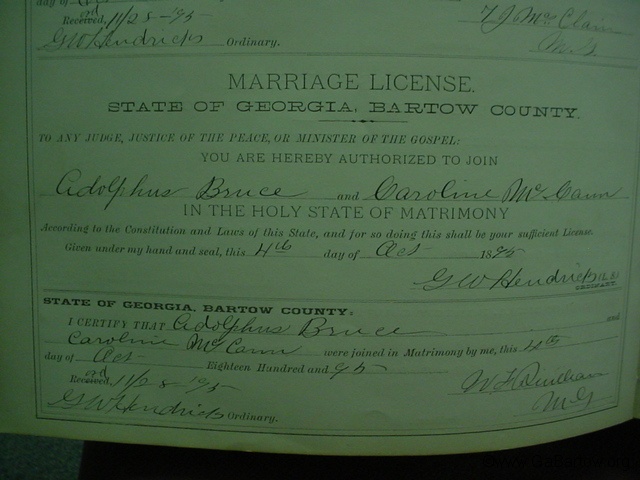 day of
Received, 11/28-1895 T J McClain
GW Hendricks Ordinary. M.G.
MARRIAGE LICENSE.
STATE OF GEORGIA, BARTOW COUNTY.
TO ANY JUDGE, JUSTICE OF THE PEACE, OR MINISTER OF THE GOSPEL:
YOU ARE HEREBY AUTHORIZED TO JOIN
Adolphus Bruce and Caroline McCann
IN THE HOLY STATE OF MATRIMONY
According to the Constitution and Laws of this State, and for so doing this shall be your sufficient License.
Given under my hand and seal, this 4th day of Oct 1895
GW Hendricks [L.S.]
ORDINARY.
STATE OF GEORGIA, BARTOW COUNTY:
I CERTIFY THAT Adolphus Bruce and
Caroline McCann were joined in Matrimony by me, this 4th
day of Oct Eighteen Hundred and 95
Received, 11/28-1895
GW Hendricks Ordinary. M.G.